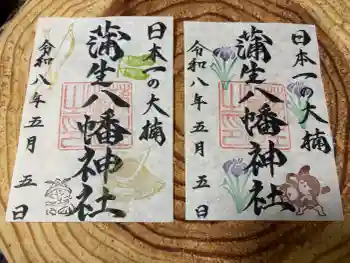 日本一の大楠
蒲生八幡神社
令和八年五月五日
日本一の大楠
蒲生八幡神社
令和八年五月五日